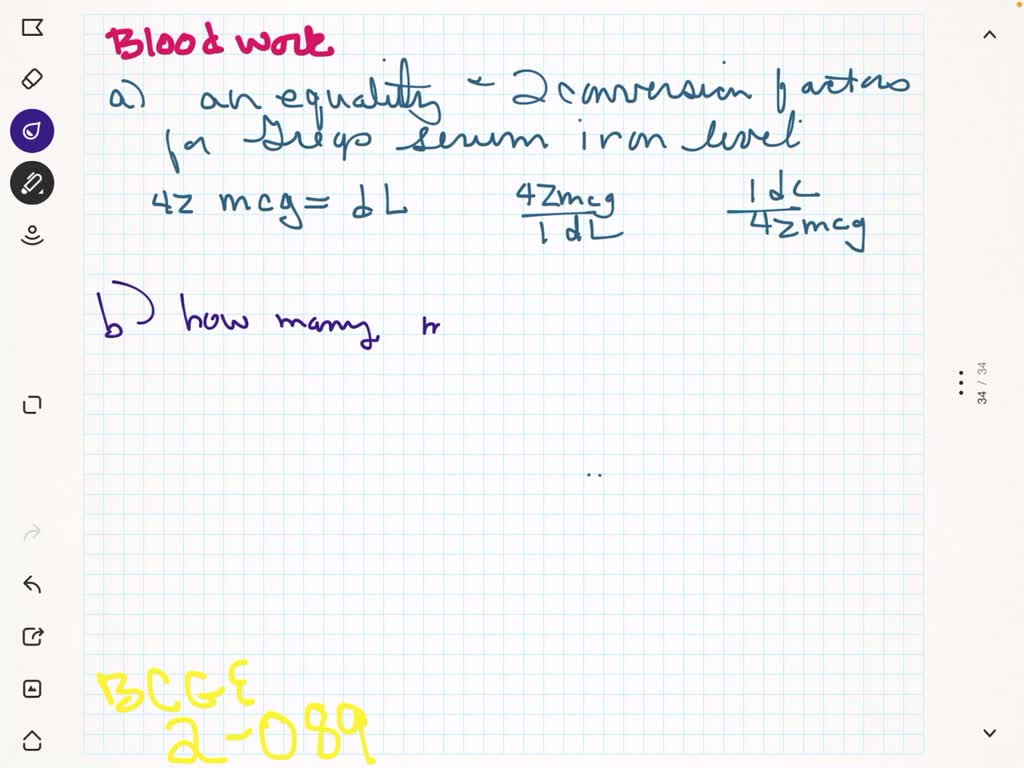 Blood work
a) an equality + 2 conversion factors
for Gregs serum iron level
42 mcg = dL 42mcg / 1 dL 1 dL / 42mcg
b) how many
34 / 34
BCGE
2-089